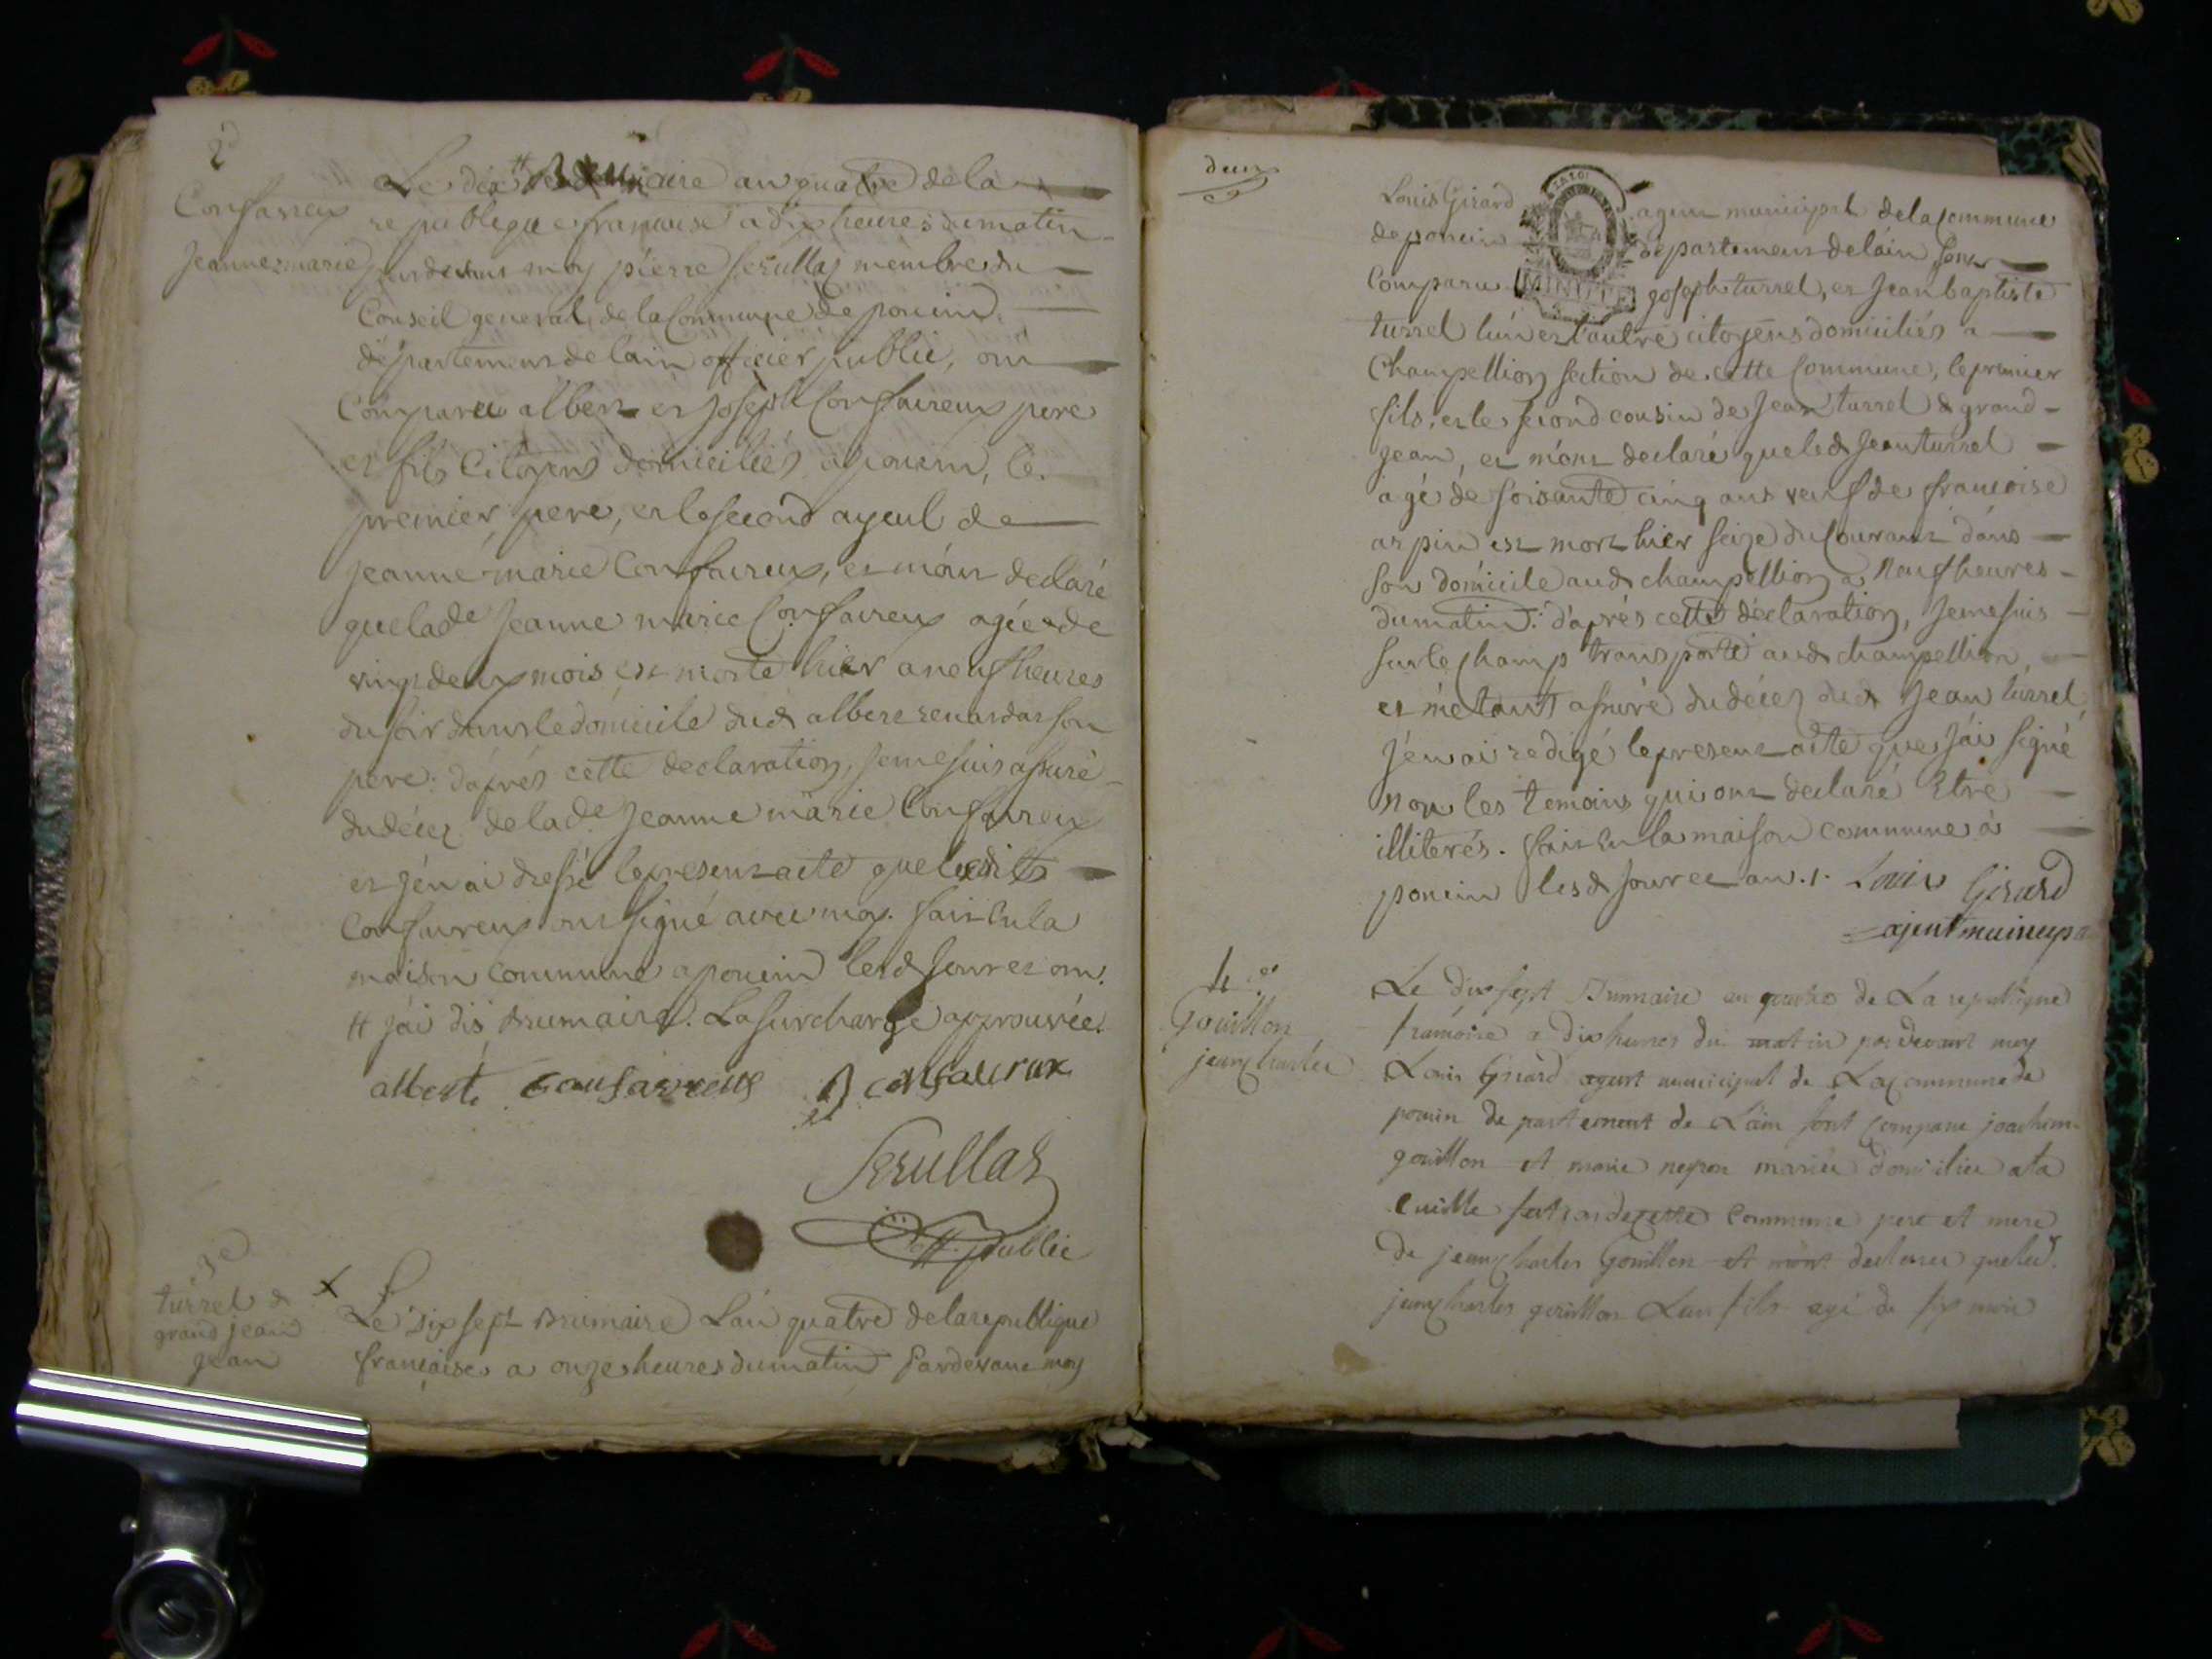 2d
Confaveux
Jeanne marie
Le dix # Brumaire an quatre de la
republique francoise a dix heures du matin
pardevant moy pierre Serullaz membre du
Conseil general de la Commune de poncin
département de lain officier public, ont
Comparu albert et Joseph Confaureux pere
et fils Citoyens domiciliés a poncin, le
premier pere, et le second ayeul de
Jeanne marie Confaureux, et m'ont declaré
que lade Jeanne marie Confaureux agée de
vingt deux mois est morte hier a neuf heures
du soir dans le domicile dud albert son
pere: d'aprés cette declaration, Je me suis assuré
du décez de lade Jeanne marie Confaureux
et j'en ai dressé le present acte que lesdits
Confaureux ont signé avec moy. fait en la
maison commune a poncin lesd Jour et an.
# j'ai dis Brumaire. La surcharge approuvée.
albert Confaureux J Confaurux
Serullaz
off. public
3e
turrel d
grand jean
jean
Le dix sept Brumaire L'an quatre de la republique
francaise a onze heures du matin Pardevant moy
deux
Louis Girard agent municipal de la commune
de poncin département de lain Sont
Comparu MINUTE Joseph turrel, et Jean baptiste
turrel l'un et l'autre citoyens domiciliés a
Champellion section de cette Commune, le premier
fils, et le second cousin de Jean turrel d grand-
Jean, et m'ont declaré que led Jean turrel
agé de soisante cinq ans veuf de francoise
arpin est mort hier seize du Courant dans
son domicile aud champellion a Neuf heures
du matin: d'aprés cette déclaration, Je me suis
sur le champ transporté aud champellion,
et m'étant assuré du décez dud Jean turrel,
J'en ai redigé le present acte que j'ai signé
non les temoins qui ont declaré Etre
illiterés. fait en la maison commune à
poncin lesd Jour et an. Louis Girard
ajent municypa
4e
Gouillon
jean charles
Le dix sept Brumaire an quatre de La republique
francoise a dix heures du matin pardevant moy
Louis Girard agent municipal de La commune de
poncin departement de L'ain sont comparu joachim
gouillon et marie negron mariés domicilies a la
cuielle section de cette Commune pere et mere
de jean charles Gouillon et m'ont declarer que led.
jean charles gouillon Leur fils agé de six mois